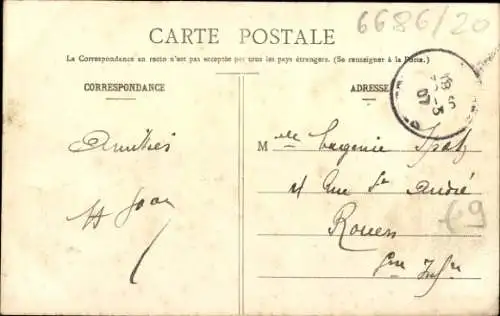 6686/20
CARTE POSTALE
La Correspondance au recto n'est pas acceptée par tous les pays étrangers. (Se renseigner à la Poste.)
CORRESPONDANCE
ADRESSE
07
Amitiés
Melle Eugenie Spatz
Rue St André
Rouen
Sne Infre